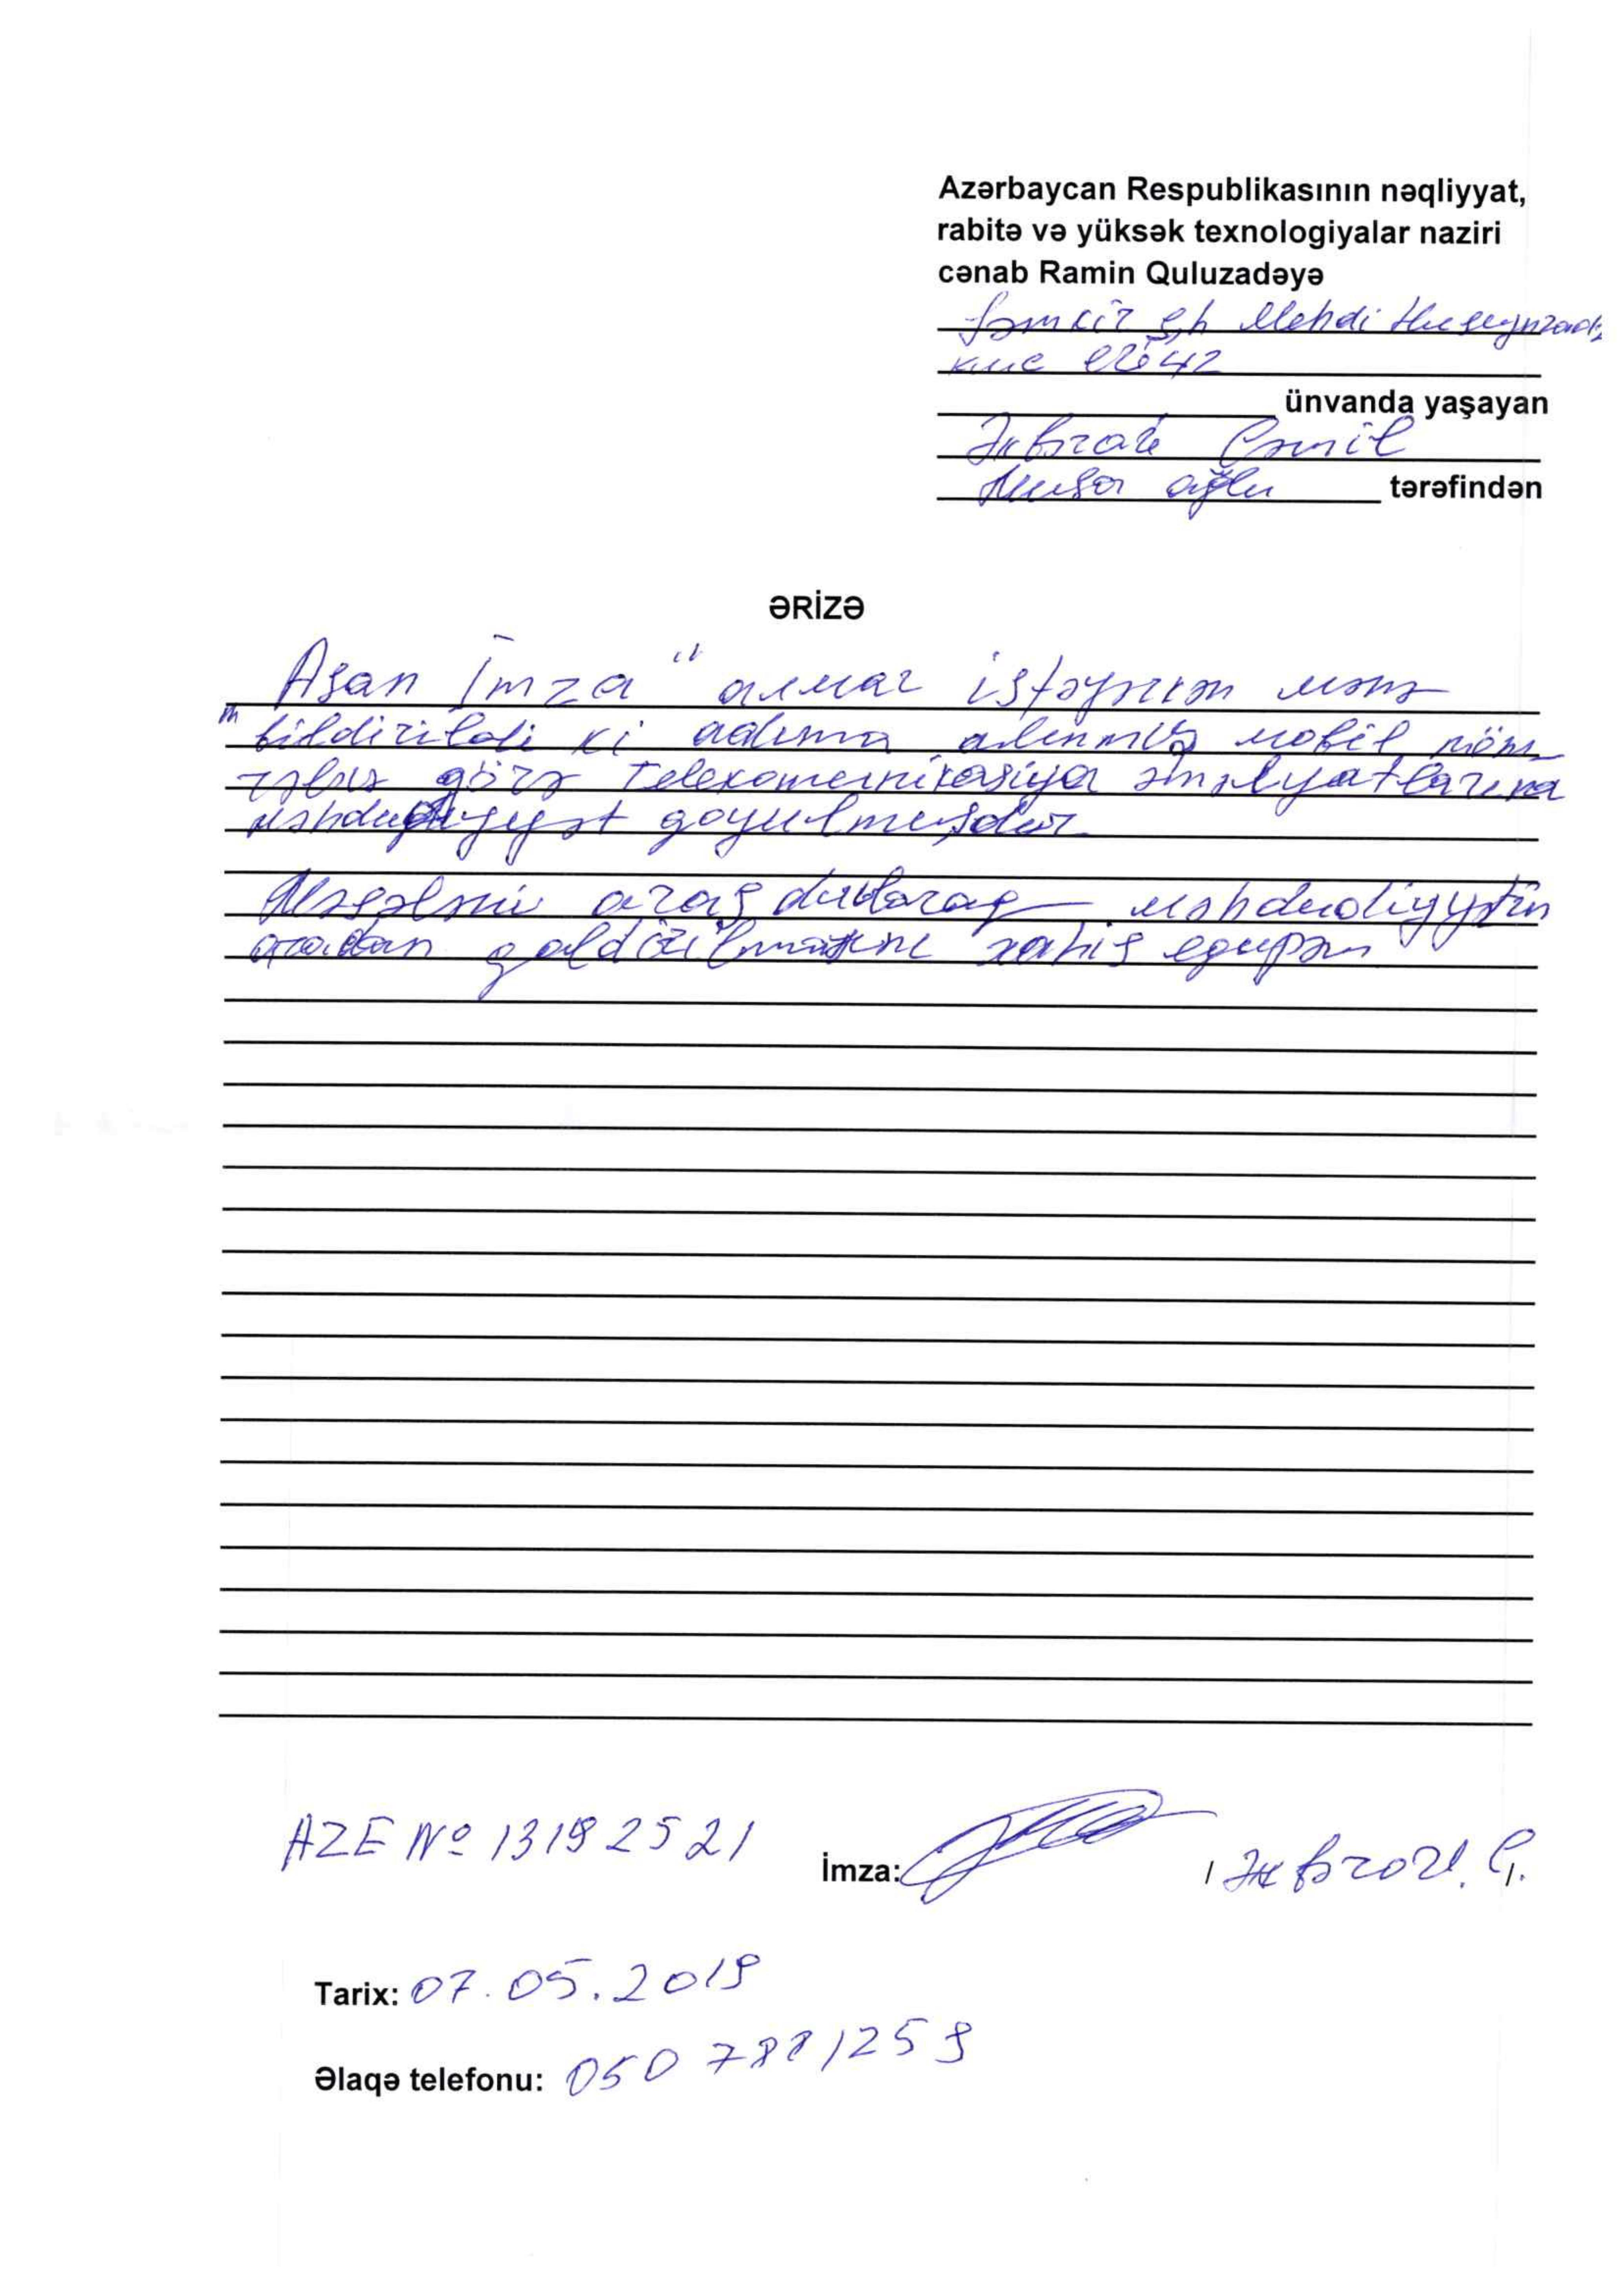 Azərbaycan Respublikasının nəqliyyat,
rabitə və yüksək texnologiyalar naziri
cənab Ramin Quluzadəyə
Şəmkir şəh Mehdi Huseynzadə
küç ev 42
ünvanda yaşayan
Əkbərov Cəmil
Musa oğlu tərəfindən
ƏRİZƏ
"Asan İmza" almaq istəyirəm mənə
bildirildi ki adıma alınmış mobil nöm-
rələrə görə Telekomunikasiya əməlyatlarına
məhdudiyyət qoyulmuşdur
Məsələni araşdıraraq məhdudiyyətin
aradan qaldırılmasını xahiş edirəm
AZE № 13192521
İmza: / Əkbərov. C.
Tarix: 07.05.2019
Əlaqə telefonu: 050 7881259